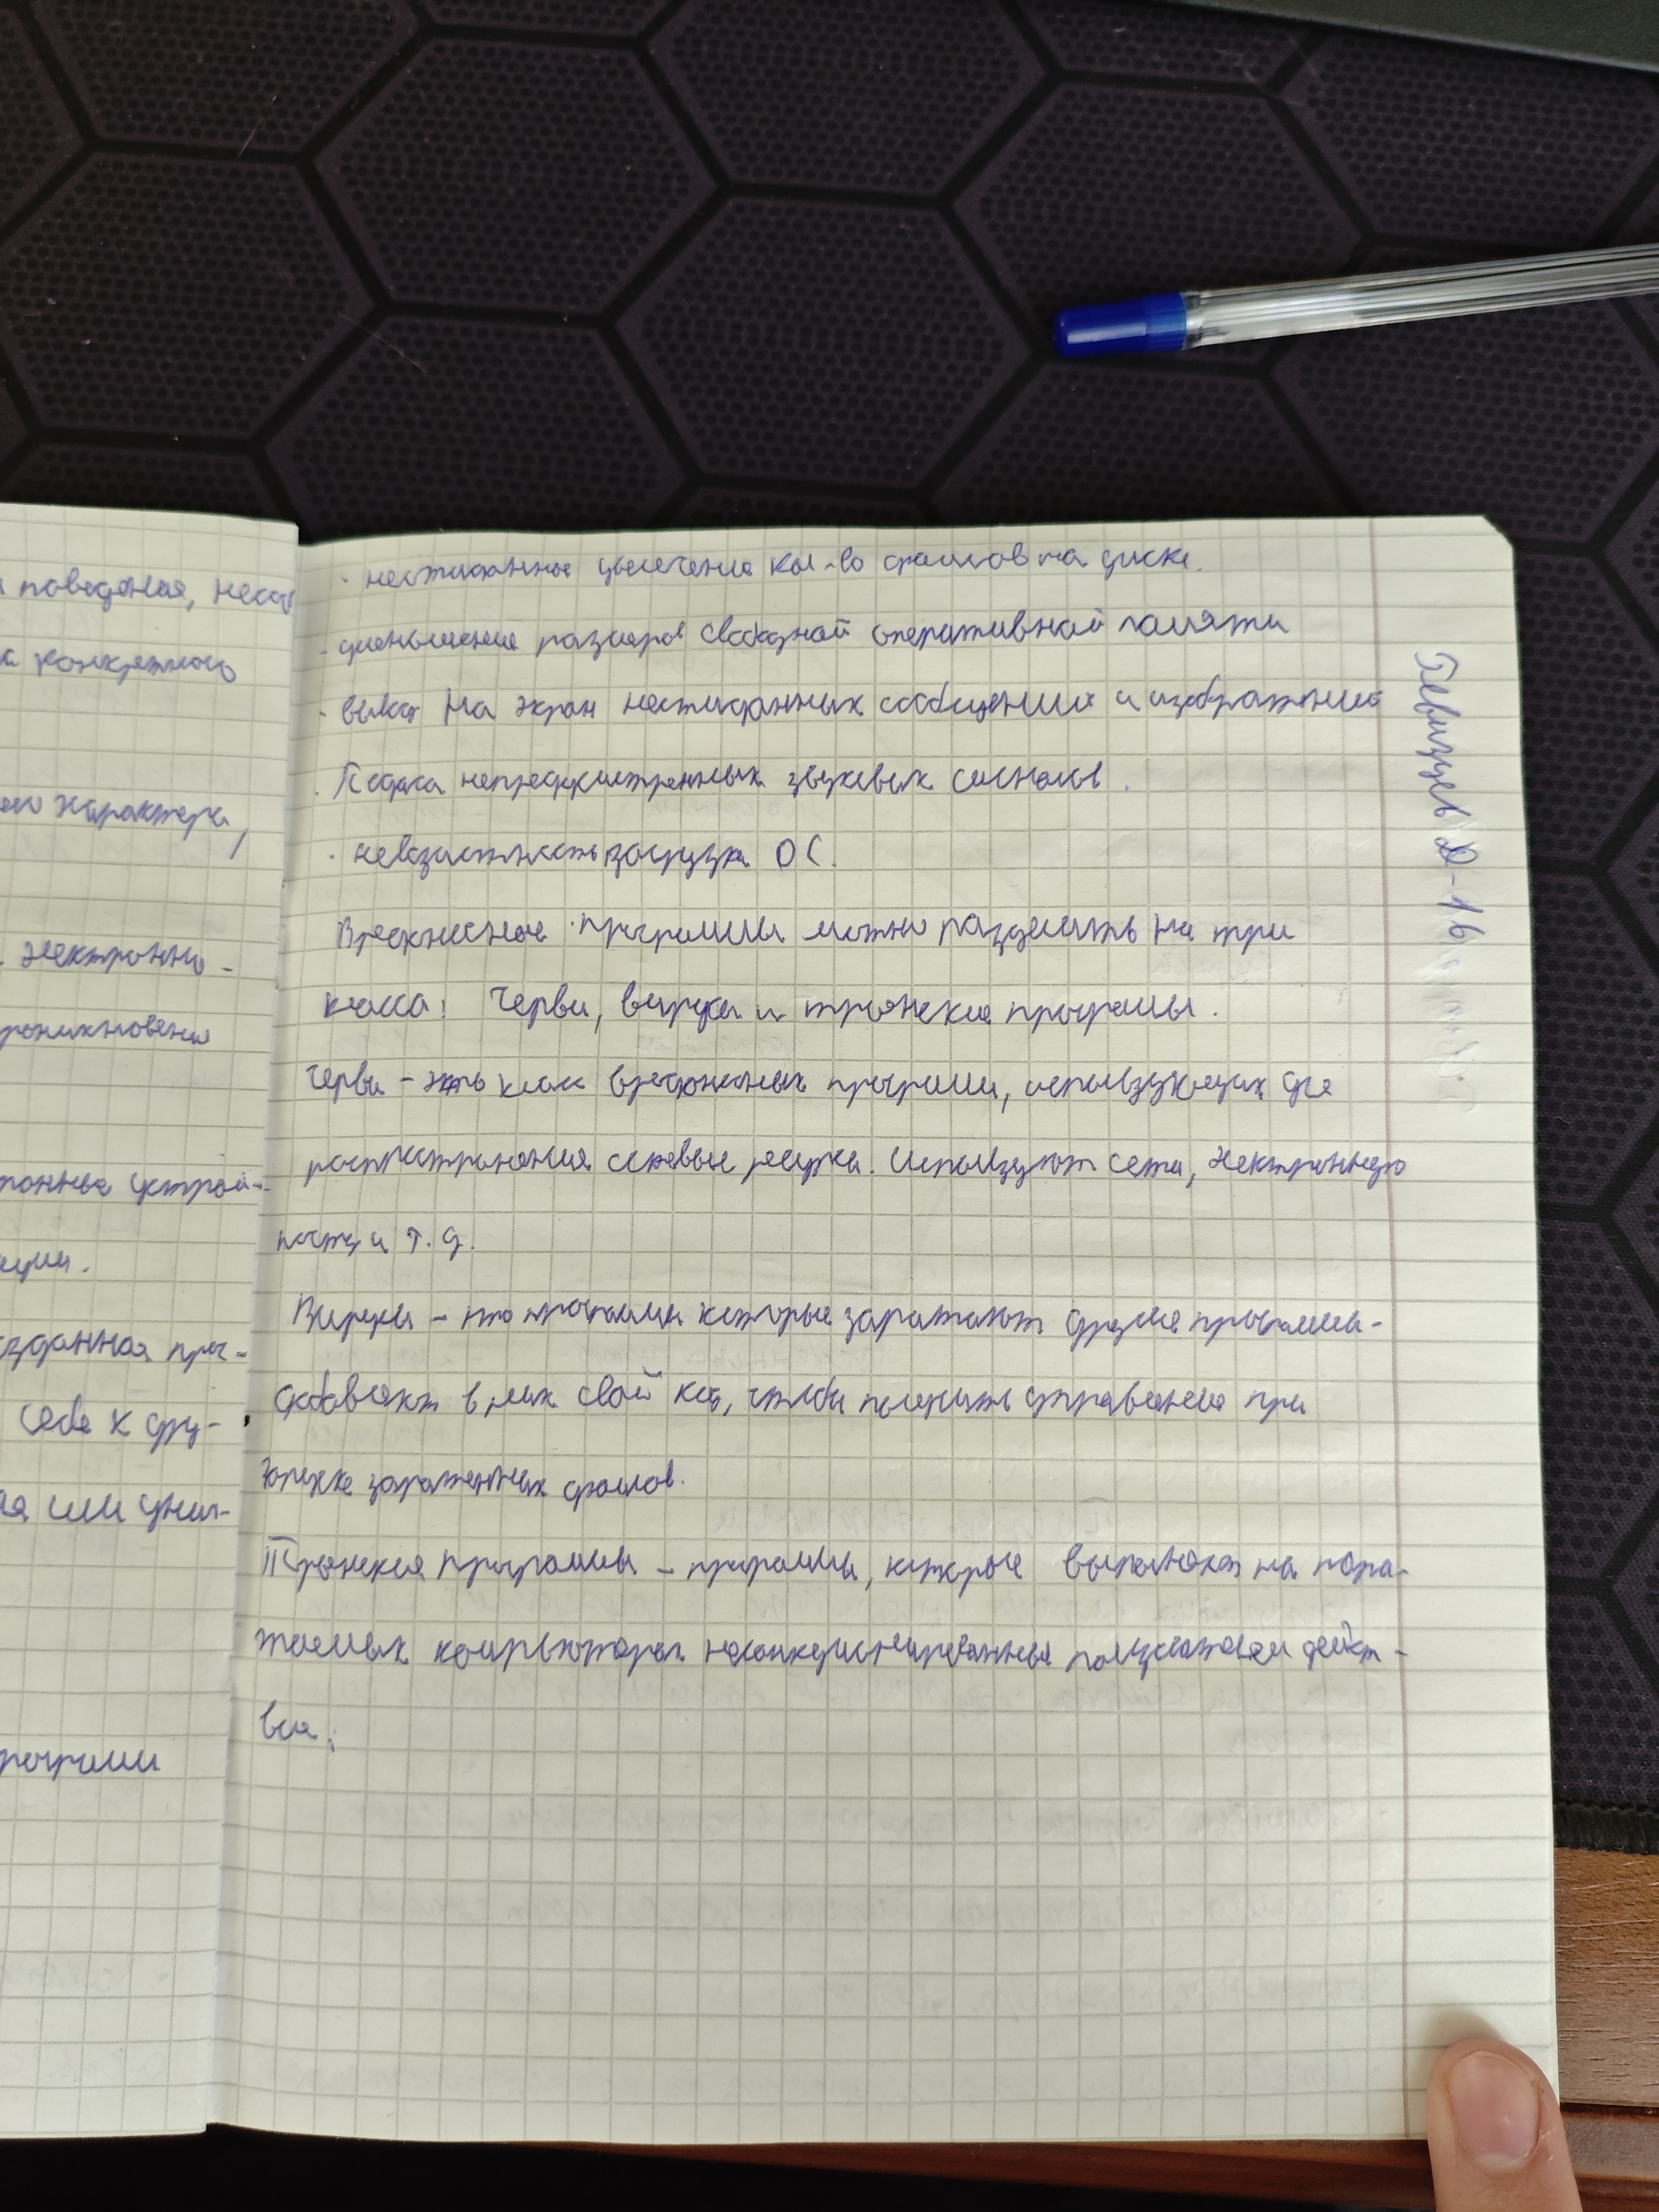 я поведения, несан
к конкретного
ого характера,
. электронно-
роникновения
тронные устрой-
ации.
озданная прог-
себя к дру-
ая или унич-
рограмм
· неожиданное увеличение кол-во файлов на диске.
· уменьшение размеров свободной оперативной памяти
· вывод на экран неожиданных сообщений и изображений
· Подача непредусмотренных звуковых сигналов.
· невозможность загрузки ОС.
Вредоносные программы можно разделить на три
класса: Черви, вирусы и троянские программы.
Черви - это класс вредоносных программ, использующих для
распространения сетевые ресурсы. Используют сети, электронную
почту и т. д.
Вирусы - это программы которые заражают другие программы-
добавляют в них свой код, чтобы получить управление при
запуске зараженных файлов.
Троянские программы - программы, которые выполняют на пора-
жаемых компьютерах несанкционированные пользователем дейст-
вия.
Певизцев Д-16